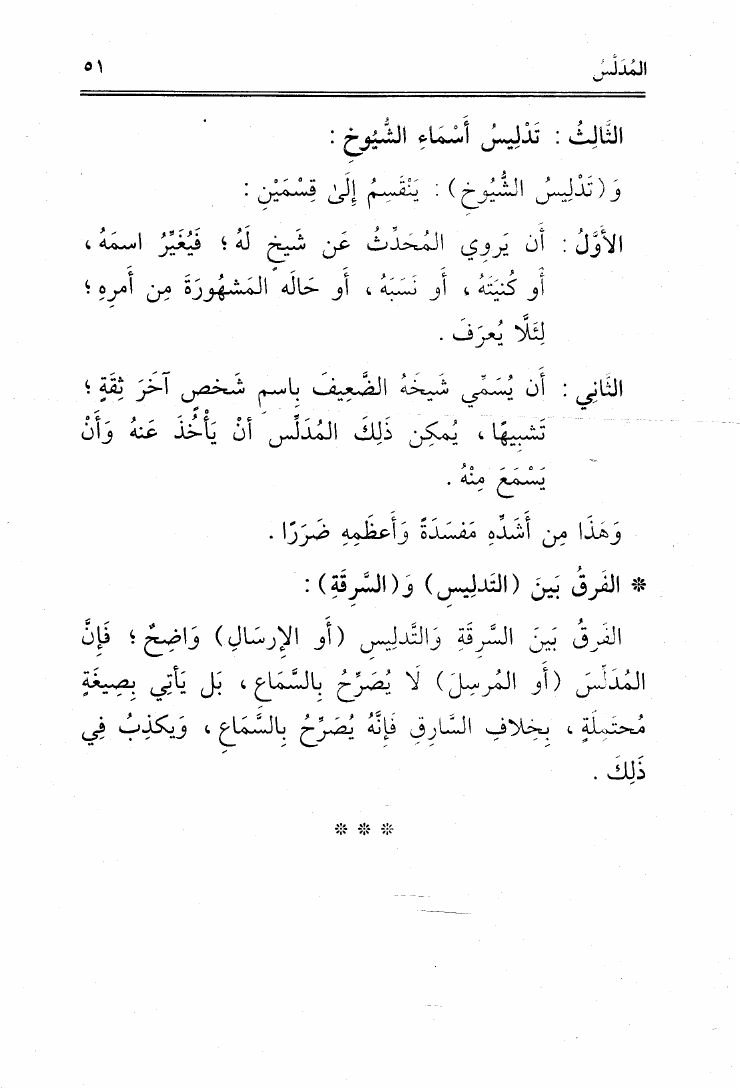 المُدَلَّسُ ٥١
الثَّالِثُ : تَدْلِيسُ أَسْمَاءِ الشُّيُوخِ :
وَ(تَدْلِيسُ الشُّيُوخِ) : يَنْقَسِمُ إِلَىٰ قِسْمَيْنِ :
الأوَّلُ : أن يَروِي المُحَدِّثُ عَن شَيخٍ لَهُ ؛ فَيُغَيِّرُ اسمَهُ ،
أو كُنيَتَهُ ، أو نَسَبَهُ ، أو حَالَه المَشهُورَةَ مِن أمرِهِ ؛
لِئَلَّا يُعرَفَ .
الثَّانِي : أن يُسَمِّي شَيخَهُ الضَّعِيفَ بِاسمِ شَخصٍ آخَرَ ثِقَةٍ ؛
تَشبِيهًا ، يُمكِن ذَلِكَ المُدَلِّس أنْ يَأْخُذَ عَنهُ وَأنْ
يَسْمَعَ مِنْهُ .
وَهَذَا مِن أشَدِّهِ مَفسَدَةً وَأعظَمِهِ ضَرَرًا .
* الفَرقُ بَينَ (التَدلِيسِ) وَ(السَّرِقَةِ) :
الفَرقُ بَينَ السَّرِقَةِ وَالتَّدلِيسِ (أو الإرسَالِ) وَاضِحٌ ؛ فَإنَّ
المُدَلِّسَ (أو المُرسِلَ) لَا يُصَرِّحُ بِالسَّمَاعِ ، بَل يَأتِي بِصِيغَةٍ
مُحتَمِلَةٍ ، بِخِلافِ السَّارِقِ فَإنَّهُ يُصَرِّحُ بِالسَّمَاعِ ، وَيكذِبُ فِي
ذَلِكَ .
* * *